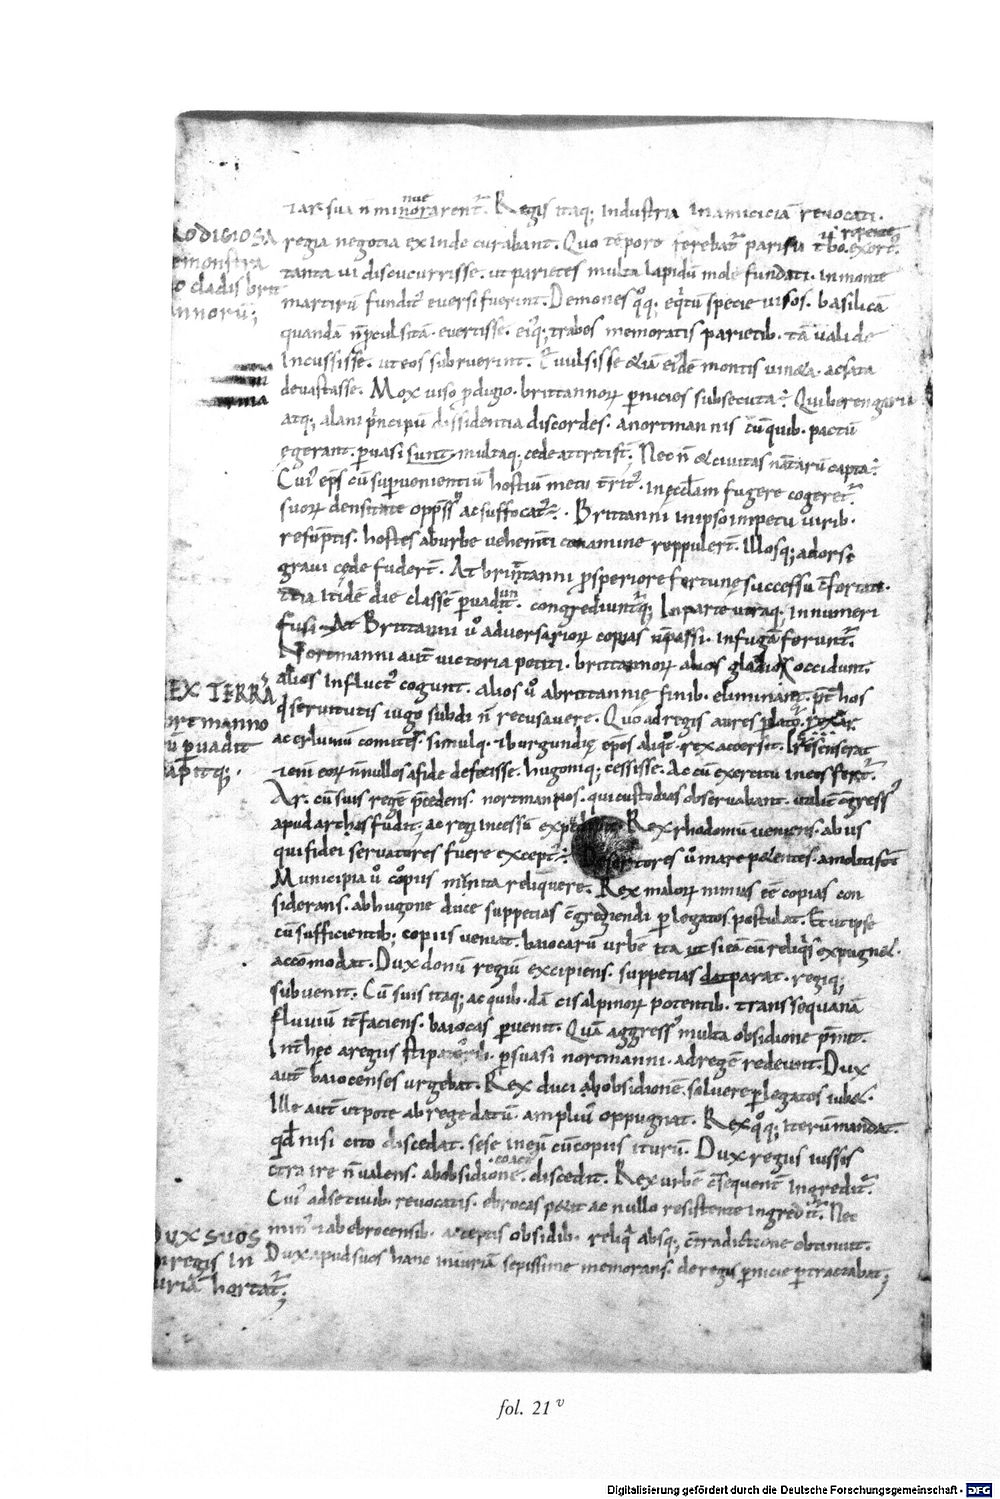 ⁊ ar. sua n̄ minorarent᷑. Regis itaq; industria in amiciciā revocati.
nue
RODIGIOSA
regia negotia exinde curabant. Quo tēpore ferebat᷑ parisii t᷑bo. exort᷑.
repente
emonstra
tanta vi discucurrisse. ut parietes multa lapidū mole fundati. in monte
o cladis brit
martirū fundit᷒ eversi fuerint. Demones qͦq; eq̇tū specie visos. basilicā
annorū;
quandā n̄ p̄cul sitā. evertisse. ei᷒q; trabes memoratis parietib. tā valide
incussisse. ut eos subruerint. Evulsisse &iā ei᷒dē montis vin&a. ac sata
devastasse. Mox viso p̄digio. brittannoꝝ p̄nicies subsecuta. Qui berengarii
atq; alani ṗncipū dissidentia discordes. a nortmannis cū quib. pactū
egerant. p̄vasi sunt. multaq; cede attriti sī. Nec n̄ & civitas nātarū capta.
Cui᷒ ep̄s cū sup̄venientiū hostiū metu t᷑rit᷒. in ęcclam fugere coger&᷑.
suoꝝ densitate opp̄ss᷒ ac suffocat᷒. Brittanni in ipso impetu virib.
resūptis. hostes ab urbe vehem̄ti conamine reppuler̄t. Illosq; adorsi
gravi cęde fuder̄t. At brittanni p̄speriore fortunę successu c̄fortati.
t̄tia itidē die classē p̄vadunt. congrediunt᷑q;. In parte utraq; innumeri
fusi. At Brittanni vͦ adversarioꝝ copias n̄ passi. in fugā ferunt᷑.
Nortmanni aut̄ victoria potiti. brittannoꝝ alios gladio occidunt.
alios in fluct᷒ cogunt. alios vͦ a brittannię finib. eliminant. p̄t hos
EX TERRĀ
q̇ servitutis iugo subdi n̄ recusavere. Quo ad regis aures plato. rex ar.
ortmanno
ac erluinū comites. simulq. ⁊ burgundię ep̄os aliq̄t. rex accersit. Presenserat
ū p̄vadit
⁊enī eoꝝ n̄nullos a fide defecisse. hugoniq; cessisse. Ac cū exercitu in eos fert᷑.
apitq;.
Ar. cū suis regē p̄cedens. nortmannos. qui custodias observabant. viriliter c̄gress᷒
apud arthas fudit. ac regi incessū expedivit. Rex rhodomū veniens. ab iis
qui fidei servatores fuere except᷒. Desertores vͦ mare petentes. amoliti sūt
Municipia vͦ copiis munita reliquere. Rex maloꝝ nimias eē copias con
siderans. ab hugone duce suppetias c̄grediendi p̄ legatos postulat. Et ut ipse
cū sufficientib; copiis veniat. baiocarū urbē ita ut si eā cū reliq̇s expugn&.
accōmodat. Dux donū regiū excipiens. suppetias dat parat. regiq;
subvenit. Cū suis itaq; ac quib. dā cisalpinoꝝ potentib. trans sequanā
fluviū it̄ faciens. baiocas p̄venit. Quā aggress᷒ multa obsidione p̄mit.
Int̄ hec a regiis stipatorib. p̄suasi nortmanni. ad regē redeunt. Dux
aut̄ baiocenses urgebat. Rex duci ab obsidionē solvere p̄ legatos iub&.
Ille aut̄ ut pote ab rege datū. ampliū oppugnat. Rex qͦq; iterū mandat.
qđ nisi cito discedat. sese in eū cū copiis iturū. Dux regiis iussis
c̄tra ire n̄ valens. ab obsidione discedit. Rex urbē c̄sequent̄ ingredit᷑.
coact᷒
Cui᷒ ad se tivib. revocatis. ebrocas petit ac nullo resistente ingredit᷑. Nec
DUX SUOS
min᷒ ⁊ ab ebrocensib. acceptis obsidib. reliq̇ absq; c̄tradictione obtinuit.
regis in
Dux apud suos hanc iniuriā sepissime memorans. de regis p̄nicie p̄tractabat;
uriā hortat᷑;
fol. 21 v
Digitalisierung gefördert durch die Deutsche Forschungsgemeinschaft - DFG